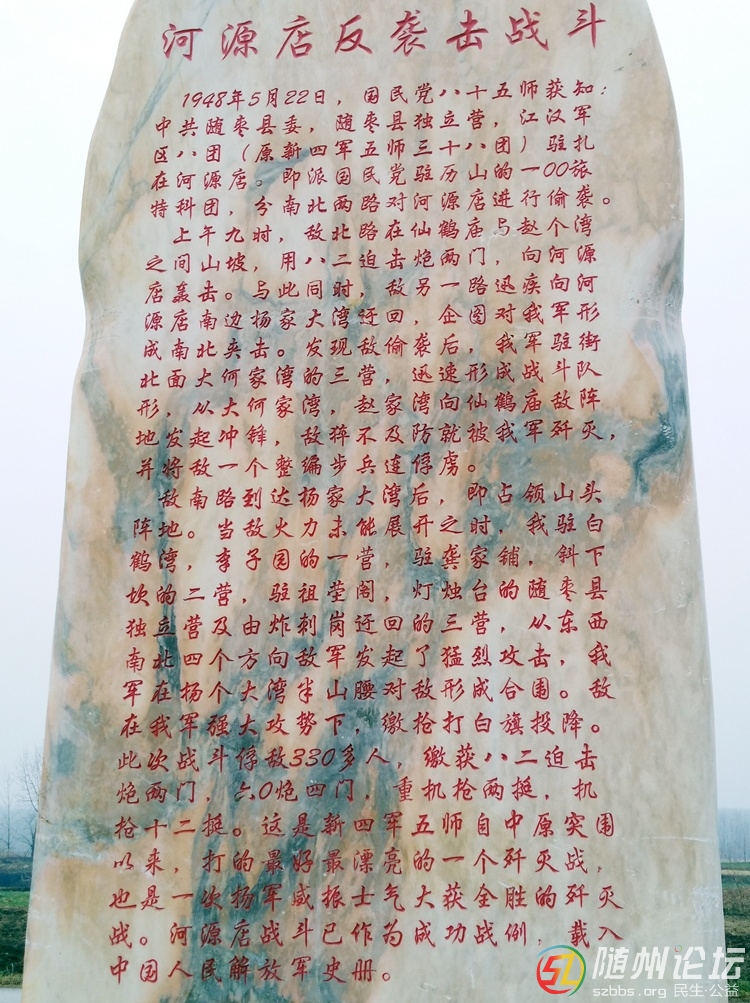 河源店反袭击战斗
1948年5月22日，国民党八十五师获知：
中共随枣县委，随枣县独立营，江汉军
区八团（原新四军五师三十八团）驻扎
在河源店。即派国民党驻历山的一00旅
特科团，分南北两路对河源店进行偷袭。
上午九时，敌北路在仙鹤庙与赵个湾
之间山坡，用八二迫击炮两门，向河源
店轰击。与此同时，敌另一路迅疾向河
源店南边杨家大湾迂回，企图对我军形
成南北夹击。发现敌偷袭后，我军驻街
北面大何家湾的三营，迅速形成战斗队
形，从大何家湾，赵家湾向仙鹤庙敌阵
地发起冲锋，敌猝不及防就被我军歼灭，
并将敌一个整编步兵连俘虏。
敌南路到达杨家大湾后，即占领山头
阵地。当敌火力未能展开之时，我驻白
鹤湾，李子园的一营，驻龚家铺，斜下
坎的二营，驻祖茔阁，灯烛台的随枣县
独立营及由炸刺岗迂回的三营，从东西
南北四个方向敌军发起了猛烈攻击，我
军在杨个大湾半山腰对敌形成合围。敌
在我军强大攻势下，缴枪打白旗投降。
此次战斗俘敌330多人，缴获八二迫击
炮两门，六0炮四门，重机枪两挺，机
枪十二挺。这是新四军五师自中原突围
以来，打的最好最漂亮的一个歼灭战，
也是一次扬军威振士气大获全胜的歼灭
战。河源店战斗已作为成功战例，载入
中国人民解放军史册。
随州论坛
szbbs.org 民生·公益